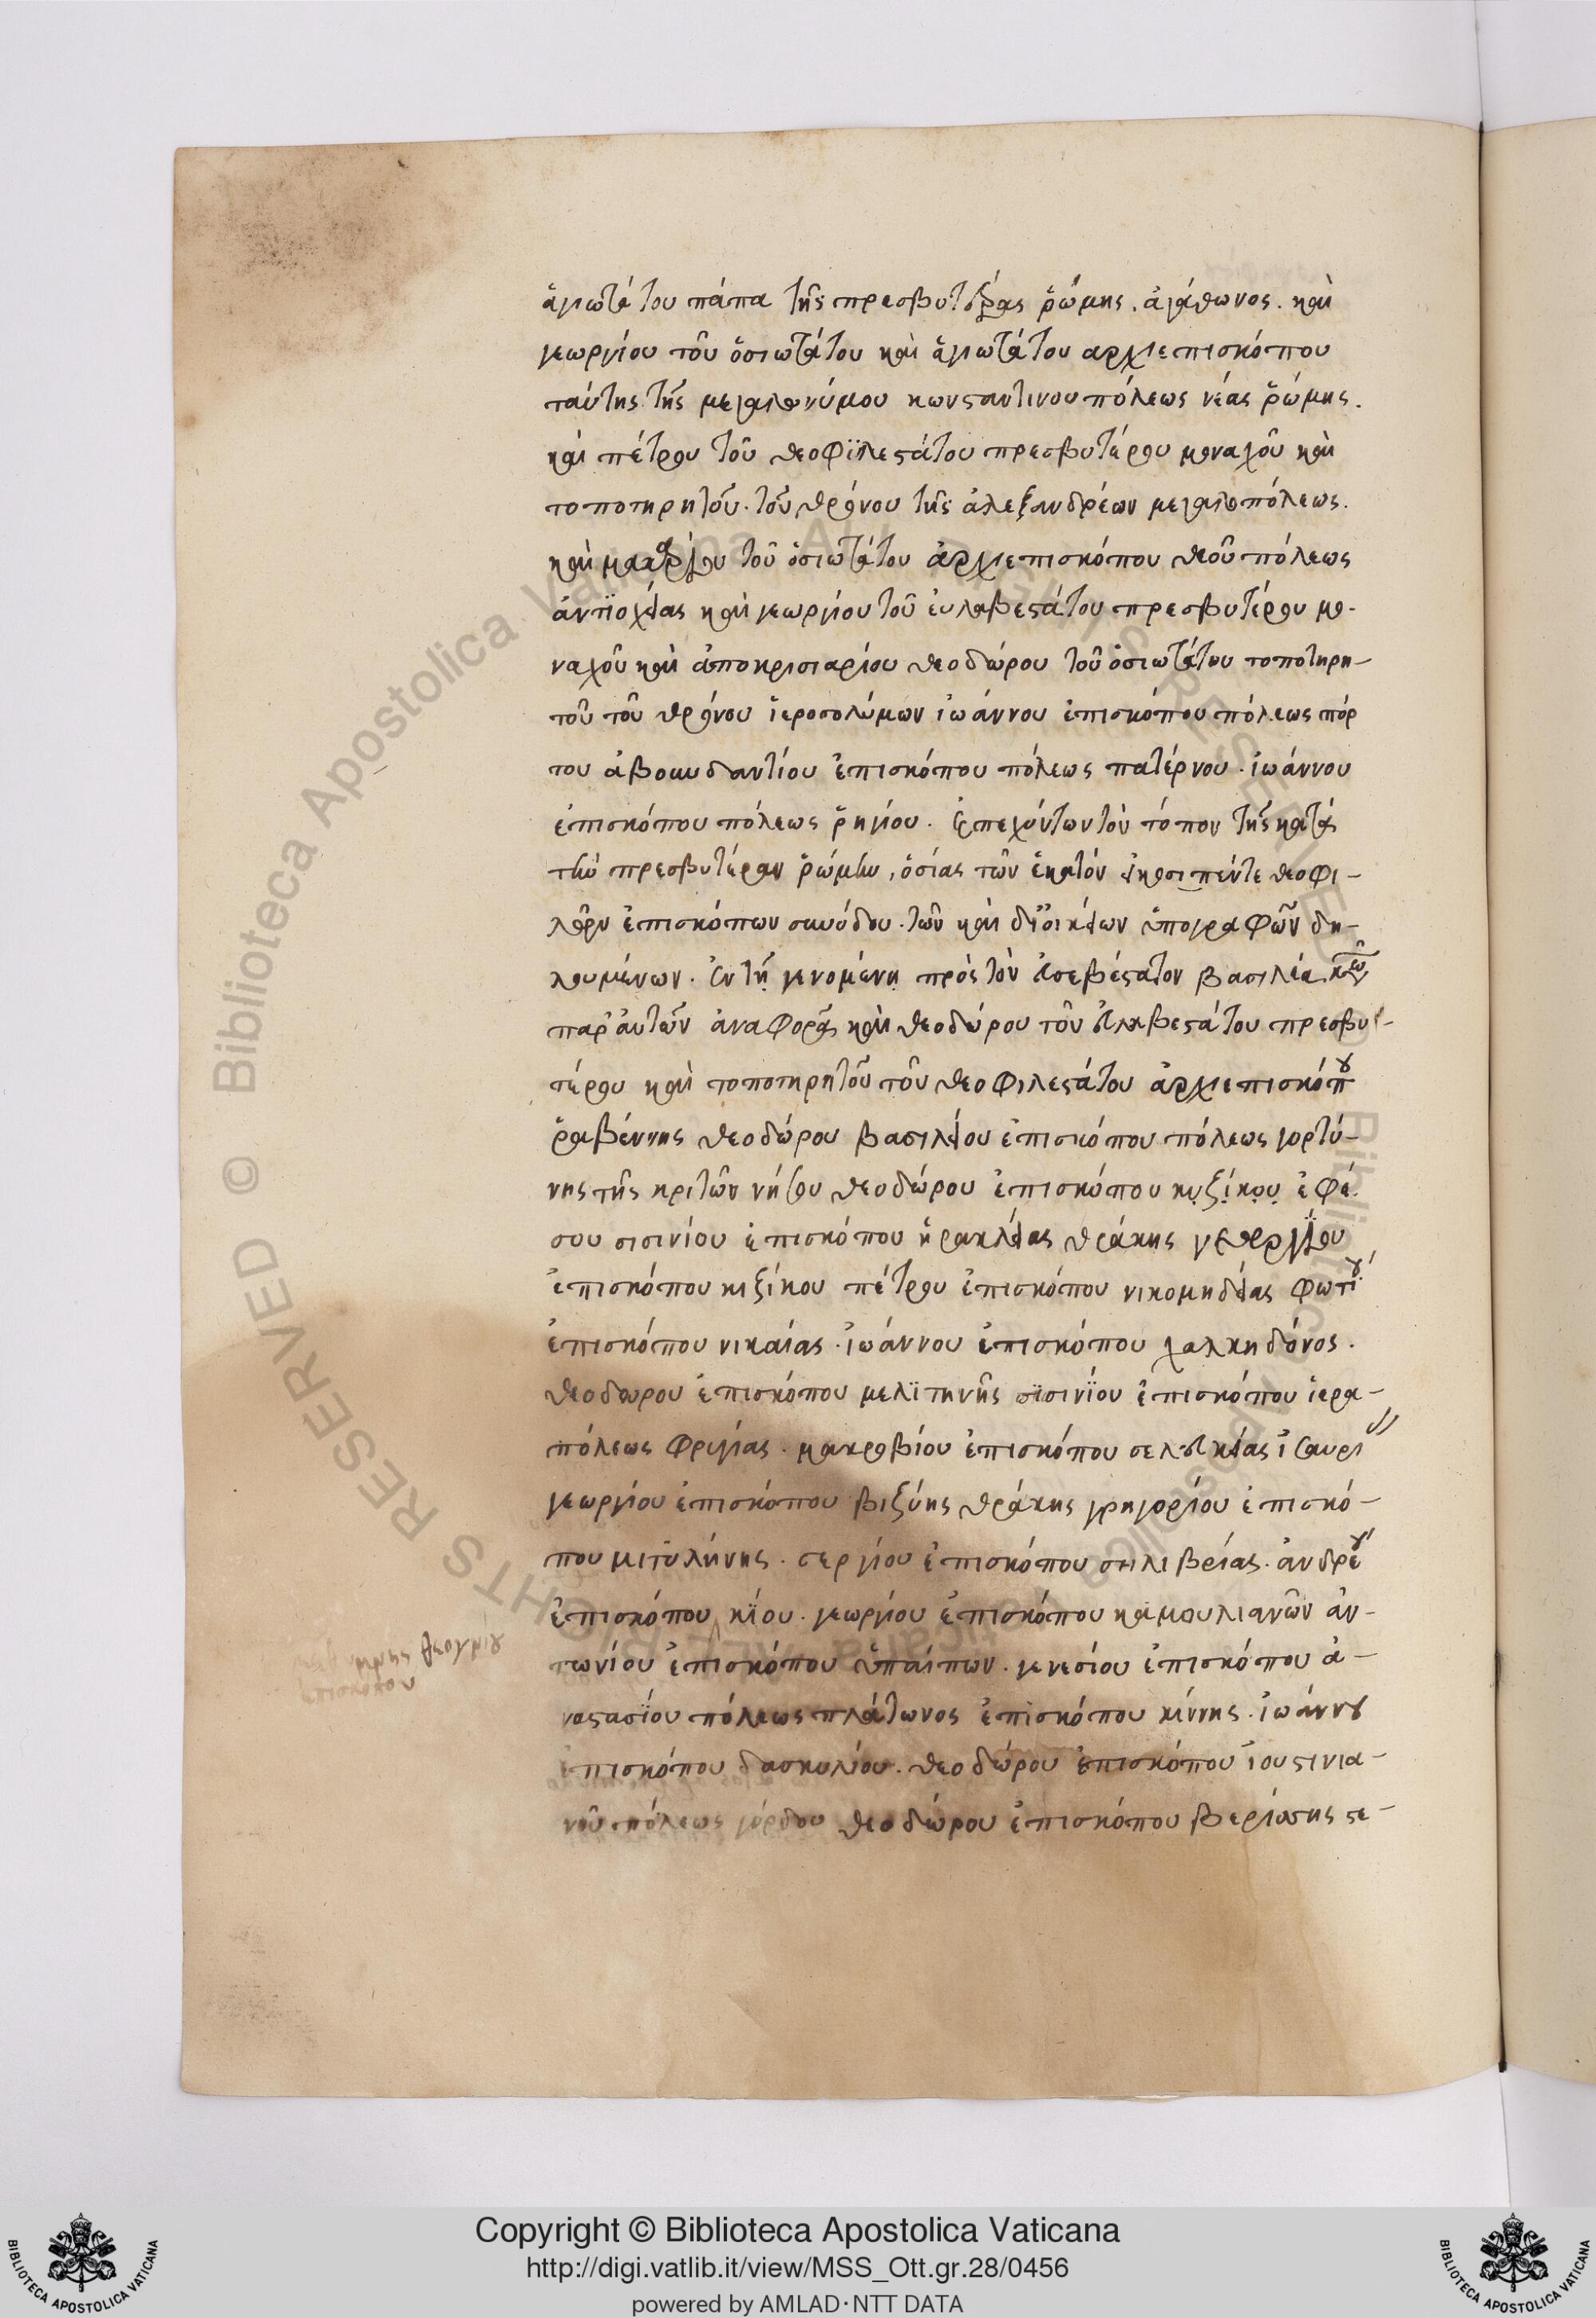 ἁγιωτάτου πάπα τῆς πρεσβυτέρας ῥώμης. ἀγάθωνος. καὶ
γεωργίου τοῦ ὁσιωτάτου καὶ ἁγιωτάτου αρχιεπισκόπου
ταύτης τῆς μεγαλωνύμου κωνσταντινουπόλεως νέας ῥώμης.
καὶ πέτρου τοῦ θεοφϊλεστάτου πρεσβυτέρου μοναχοῦ καὶ
τοποτηρητοῦ. τοῦ θρόνου τῆς ἀλεξανδρέων μεγαλοπόλεως.
καὶ μακαρίου τοῦ ὁσιωτάτου ἀρχιεπισκόπου θεοῦ πόλεως
ἀντϊοχείας καὶ γεωργίου τοῦ ἐυλαβεστάτου πρεσβυτέρου μο-
ναχοῦ καὶ ἀποκρισιαρίου θεοδώρου τοῦ ὁσιωτάτου τοποτηρη-
τοῦ τοῦ θρόνου ἱεροσολύμων ἰωάννου ἐπισκόπου πόλεως πόρ
του ἀβουνδαντίου ἐπισκόπου πόλεως πατέρνου. ἰωάννου
ἐπισκόπου πόλεως ῥηγίου. ἐπεχόντων τὸν τόπον τῆς κατὰ
τὴν πρεσβυτέραν ῥώμην, ὁσίας τῶν ἑκατόν εἰκοσιπέντε θεοφι-
λῶν ἐπισκόπων συνόδου. τῶν καὶ δι οἰκείων ὑπογραφῶν δη-
λουμένων. ἐν τῇ γενομένῃ πρὸς τὸν ἐυσεβέστατον βασιλέα
παρ ἀυτῶν ἀναφορᾶ καὶ θεοδώρου τοῦ ἐυλαβεστάτου πρεσβυ-
τέρου καὶ τοποτηρητοῦ τοῦ θεοφιλεστάτου ἀρχιεπισκόπου
ῥαβέννης θεοδώρου βασιλείου ἐπισκόπου πόλεως γορτύ-
νης τῆς κριτῶν νήσου θεοδώρου ἐπισκόπου κυξίκου ἐφέ
σου σισινίου ἐπισκόπου ἡρακλείας θράκης γεωργίου
ἐπισκόπου κιξίκου πέτρου ἐπισκόπου νικομηδείας φωτίου
ἐπισκόπου νικαίας. ἰωάννου ἐπισκόπου χαλκηδόνος.
θεοδωρου ἐπισκόπου μελϊτηνῆς σϊσινϊου ἐπισκόπου ἱερα-
πόλεως φριγίας. μακροβίου ἐπισκόπου σελευκείας ἰσαυρι
γεωργίου ἐπισκόπου βιξύης θράκης γρηγορίου ἐπισκό-
που μιτυλήνης. σεργίου ἐπισκόπου σηλιβρίας. ἀνδρέου
ἐπισκόπου κϊου. γεωργίου ἐπισκόπου καμουλιανῶν ἀν-
τωνίου ἐπισκόπου ὑπαίπων. γενεσίου ἐπισκόπου ἀ-
ναστασϊου πόλεως πλάτωνος ἐπισκόπου κίννης. ἰωάννου
ἐπισκόπου δασκυλίου. θεοδώρου ἐπισκόπου ἰουστινια-
νοῦ πόλεως γόρδου θεοδώρου ἐπισκόπου βερίσσης στε-
θεογνίου
ἐπισκόπου
Copyright © Biblioteca Apostolica Vaticana
http://digi.vatlib.it/view/MSS_Ott.gr.28/0456
powered by AMLAD·NTT DATA
BIBLIOTECA APOSTOLICA VATICANA
BIBLIOTECA APOSTOLICA VATICANA